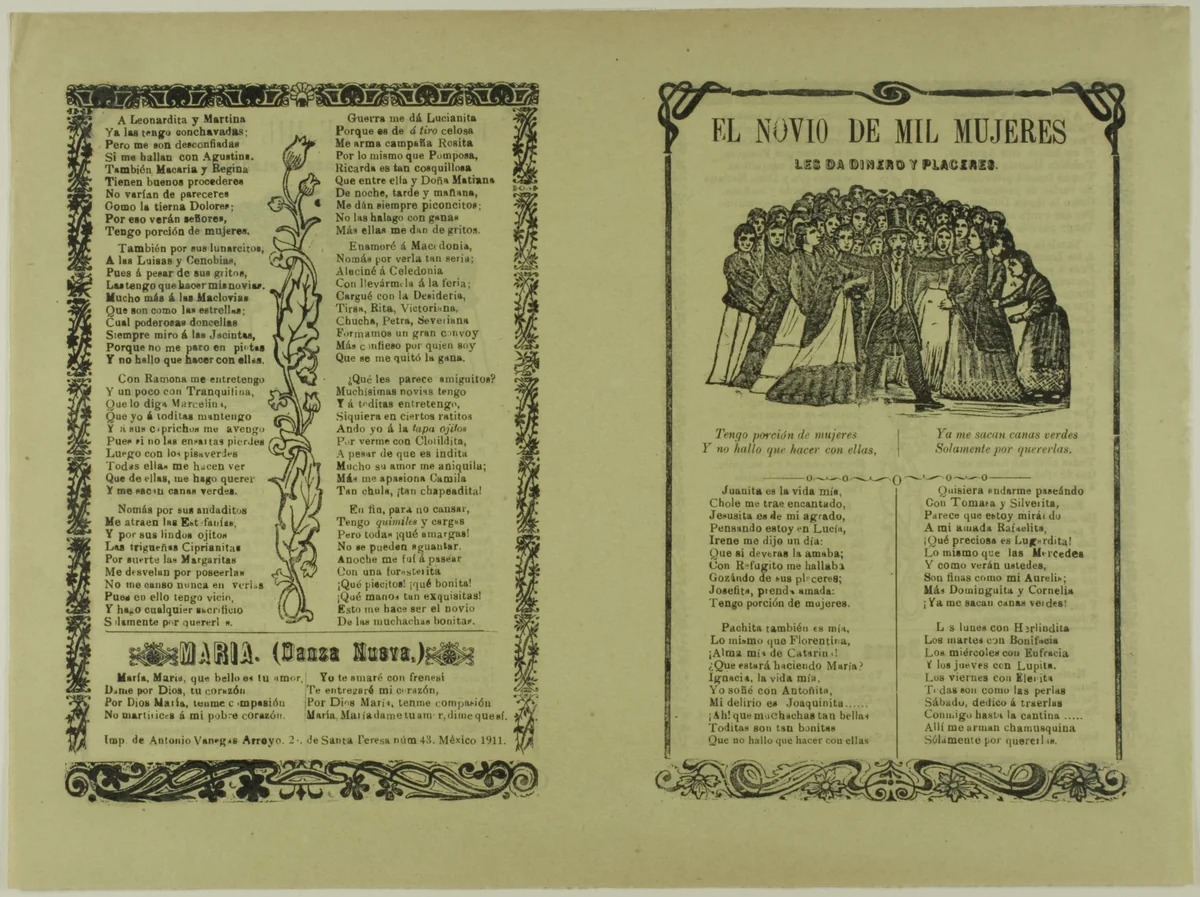 A Leonardita y Martina
Ya las tengo conchavadas;
Pero me son desconfiadas
Si me hallan con Agustina.
También Macaria y Regina
Tienen buenos procederes
No varían de pareceres
Como la tierna Dolores;
Por eso verán señores,
Tengo porción de mujeres.
También por sus lunarcitos,
A las Luisas y Cenobias,
Pues á pesar de sus gritos,
Las tengo que hacer mis novias.
Mucho más á las Maclovias
Que son como las estrellas;
Cual poderosas doncellas
Siempre miro á las Jacintas,
Porque no me paro en pintas
Y no hallo que hacer con ellas.
Con Ramona me entretengo
Y un poco con Tranquilina,
Que lo diga Marcelina,
Que yo á toditas mantengo
Y a sus caprichos me avengo
Pues si no las ensartas pierdes
Luego con los pisaverdes
Todas ellas me hacen ver
Que de ellas, me hago querer
Y me sacan canas verdes.
Nomás por sus andaditos
Me atraen las Estefanías,
Y por sus lindos ojitos
Las trigueñas Ciprianitas
Por suerte las Margaritas
Me desvelan por poseerlas
No me canso nunca en verlas
Pues en ello tengo vicio,
Y hago cualquier sacrificio
Solamente por quererlas.
Guerra me dá Lucianita
Porque es de á tiro celosa
Me arma campaña Rosita
Por lo mismo que Pomposa,
Ricarda es tan cosquillosa
Que entre ella y Doña Matiana
De noche, tarde y mañana,
Me dán siempre piconcitos;
No las halago con ganas
Más ellas me dan de gritos.
Enamoré á Macedonia,
Nomás por verla tan seria;
Aluciné á Celedonia
Con llevármela á la feria;
Cargué con la Desideria,
Tirsa, Rita, Victoriana,
Chucha, Petra, Severiana
Formamos un gran convoy
Más confieso por quien soy
Que se me quitó la gana.
¿Qué les parece amiguitos?
Muchísimas novias tengo
Y á toditas entretengo,
Siquiera en ciertos ratitos
Ando yo á la tapa ojitos
Por verme con Clotildita,
A pesar de que es indita
Mucho su amor me aniquila;
Más me apasiona Camila
Tan chula, ¡tan chapeadita!
En fin, para no cansar,
Tengo quimiles y cargas
Pero todas ¡qué amargas!
No se pueden aguantar.
Anoche me fuí á pasear
Con una forasterita
¡Qué piecitos! ¡qué bonita!
¡Qué manos tan exquisitas!
Esto me hace ser el novio
De las muchachas bonitas.
MARIA. (Danza Nueva.)
María, María, que bello es tu amor,
Dame por Dios, tu corazón
Por Dios María, tenme compasión
No martirices á mi pobre corazón.
Yo te amaré con frenesí
Te entregaré mi corazón,
Por Dios María, tenme compasión
María, María dame tu amor, dime que sí.
Imp. de Antonio Vanegas Arroyo. 2a. de Santa Teresa núm 43. México 1911.
EL NOVIO DE MIL MUJERES
LES DA DINERO Y PLACERES.
Tengo porción de mujeres
Y no hallo que hacer con ellas,
Ya me sacan canas verdes
Solamente por quererlas.
Juanita es la vida mía,
Chole me trae encantado,
Jesusita es de mi agrado,
Pensando estoy en Lucía,
Irene me dijo un día:
Que si deveras la amaba;
Con Refugito me hallaba
Gozándo de sus placeres;
Josefita, prenda amada:
Tengo porción de mujeres.
Pachita también es mía,
Lo mismo que Florentina,
¡Alma mía de Catarina!
¿Que estará haciendo María?
Ignacia, la vida mía,
Yo soñé con Antoñita,
Mi delirio es Joaquinita......
¡Ah! que muchachas tan bellas
Toditas son tan bonitas
Que no hallo que hacer con ellas
Quisiera andarme paseándo
Con Tomasa y Silverita,
Parece que estoy mirando
A mi amada Rafaelita,
¡Qué preciosa es Lugardita!
Lo mismo que las Mercedes
Y como verán ustedes,
Son finas como mi Aurelia;
Más Dominguita y Cornelia
¡Ya me sacan canas verdes!
Los lunes con Herlindita
Los martes con Bonifacia
Los miércoles con Eufracia
Y los jueves con Lupita.
Los viernes con Elenita
Todas son como las perlas
Sábado, dedico á traerlas
Conmigo hasta la cantina.....
Allí me arman chamusquina
Sólamente por quererlas.